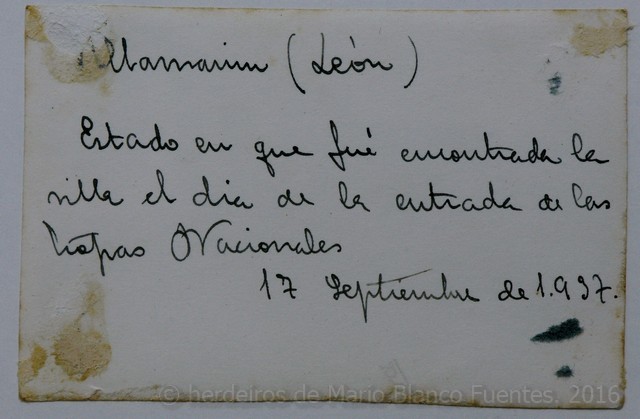 Villamanin (León)
Estado en que fué encontrada la
villa el dia de la entrada de las
tropas Nacionales
17 Septiembre de 1.937.
© herdeiros de Mario Blanco Fuentes, 2016